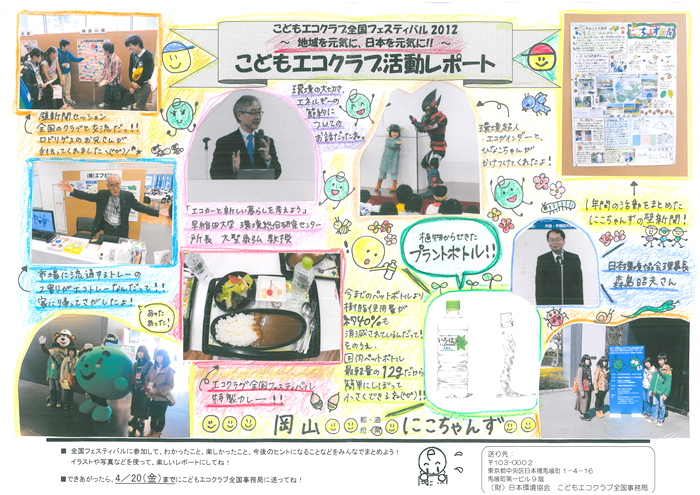 こどもエコクラブ全国フェスティバル 2012
～ 地域を元気に、日本を元気に!! ～
こどもエコクラブ活動レポート
壁新聞セッション
全国のクラブと交流だっ!!
ロドリゲスのお兄さんが
手伝ってくれました
環境の大切さ、
エネルギーの
節約に
ついての
お話だったねっ。
環境超人
エコガインダーと、
ひなこちゃんが
かけつけてくれたよ!
にこちゃんず新聞
1年間の活動をまとめた
にこちゃんずの壁新聞!
「エコカーと新しい暮らしを考えよう」
早稲田大学 環境総合研究センター
所長 大聖泰弘 教授
(株)エフピコ
市場に流通するトレーの
2割りがエコトレーなんだって!!
家に帰ってさがしたよ!
あった
あった!
植物からできた
プラントボトル!!
日本環境協会理事長
森嶌昭夫さん
今までのペットボトルより
樹脂使用量が
約40%も
消減されているんだって!
そのうえ、
国内ペットボトル
最軽量の12gだから
簡単にしぼって
小さくできるね(^o^)!!
エコクラブ全国フェスティバル
特製カレー!!
岡山
都・道
府・県
にこちゃんず
■ 全国フェスティバルに参加して、わかったこと、楽しかったこと、今後のヒントになることなどをみんなでまとめよう!
イラストや写真などを使って、楽しいレポートにしてね!
■できあがったら、4/20(金)までにこどもエコクラブ全国事務局に送ってね!
送り先：
〒103-0002
東京都中央区日本橋馬喰町1-4-16
馬喰町第一ビル9階
(財)日本環境協会 こどもエコクラブ全国事務局